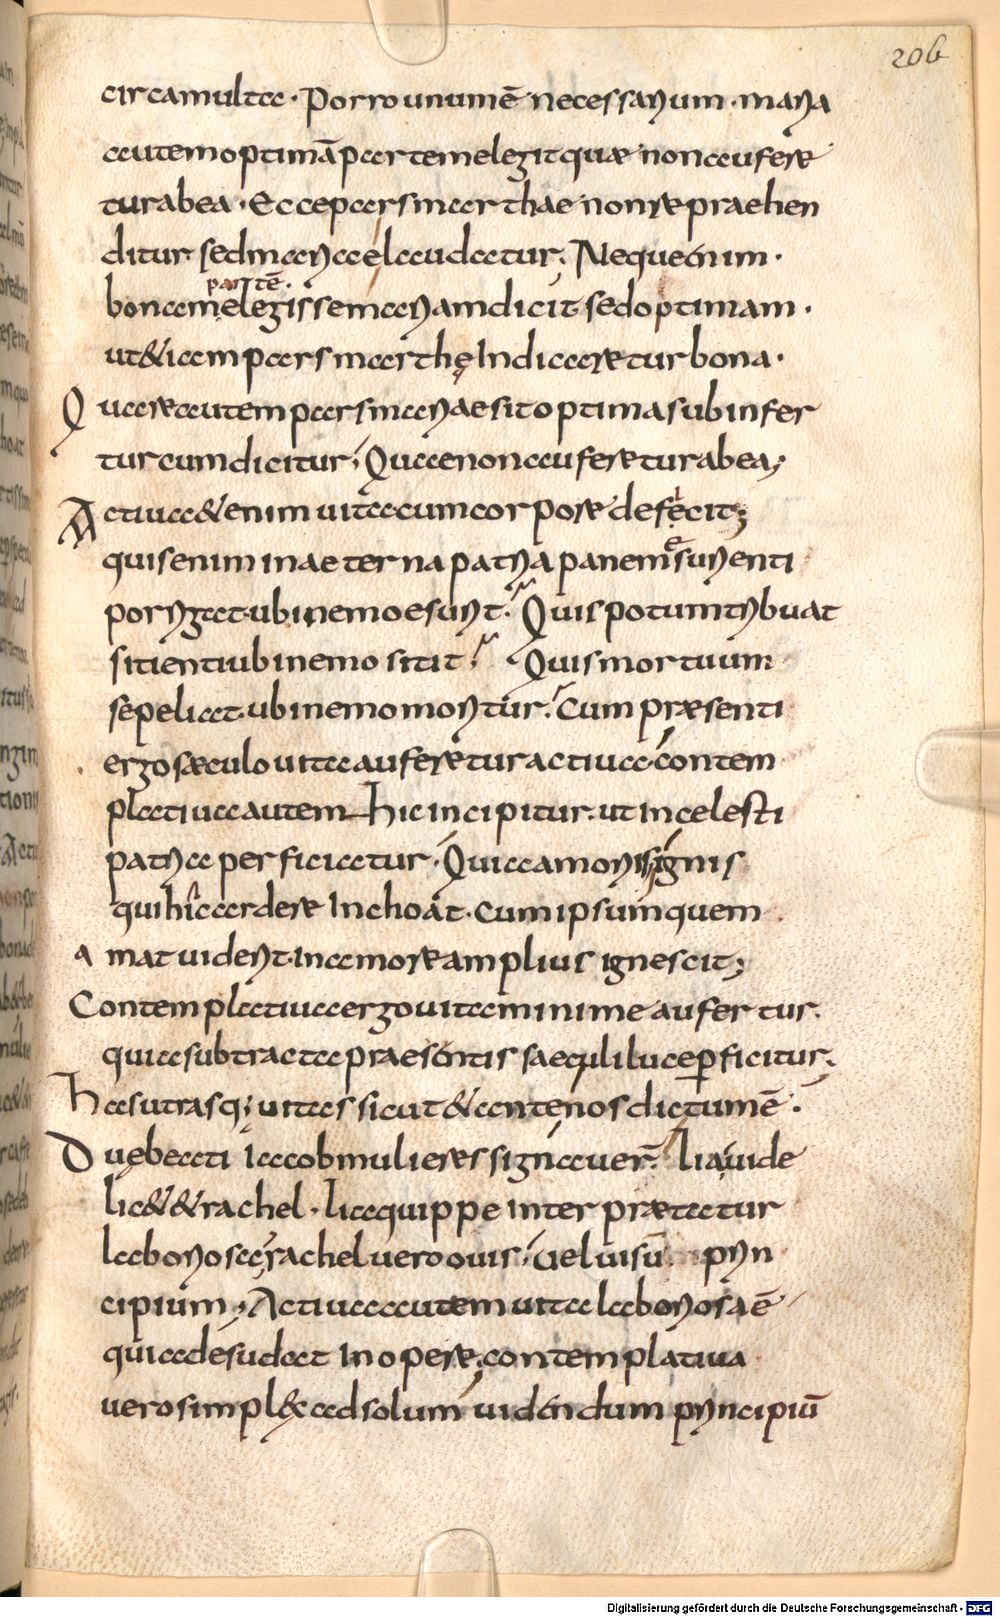 206
circa multa · Porro unum ē necessarium · maria
autem optimā partem elegit quæ non aufere
tur ab ea · Ecce pars marthae non repraehen
ditur sed maria laudatur; Neque enim ·
partē ·
bonam elegisse mariam dicit sed optimam ·
ut & iam pars marthę Indicaretur bona ·
Quare autem pars mariae sit optima subinfer
tur cum dicitur; Quae non auferetur ab ea;
Actiua & enim uita cum corpore defecit;
quis enim in aeterna patria panem esurienti
porrigat · ubi nemo esurit · Quis potum tribuat
sitienti ubi nemo sitit; Quis mortuum
sepeliat · ubi nemo moritur · Cum præsenti
ergo sæculo uita auferetur actiua · contem
platiua autem hic incipitur · ut in celesti
patria perficiatur · Quia amoris ignis
qui hic ardere Inchoat · cum ipsum quem
amat uiderit · in amore amplius ignescit;
Contemplatiua ergo uita minime aufertur ·
quia subtracta praesentis saeculi luce p̄ficitur;
has utrasq; uitas sicut & ante nos dictum ē ·
Duę beati Iacob mulieres signauer̄ · lia uide
lic& & rachel · lia quippe interprætatur
laboriosa; rachel uero ouis · Uel uisū prin
cipium; Actiua autem uita laboriosa ē
quia desudat In opere; contemplatiua
uero simpl&x ad solum uidendum principiū
Digitalisierung gefördert durch die Deutsche Forschungsgemeinschaft - DFG